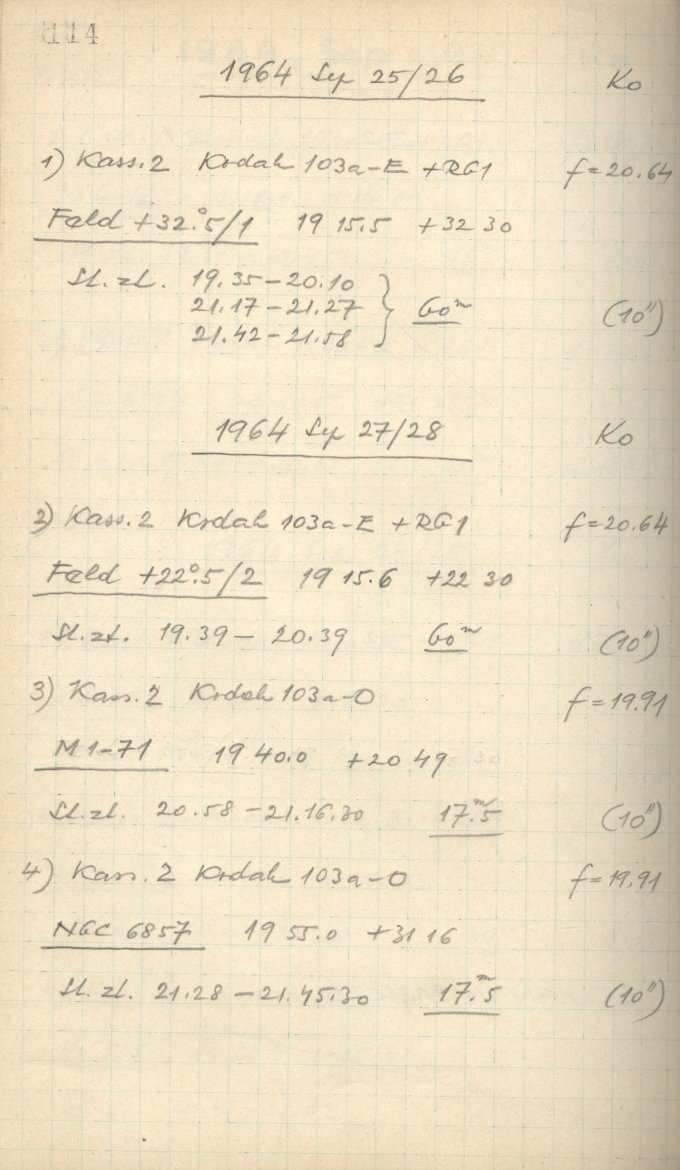 5114
1964 Sep 25/26 Ko
1) Kass. 2 Kodak 103a-E +RG1 f=20.64
Feld +32°.5/1 19 15.5 +32 30
St. zt. 19.35-20.10
21.17-21.27 } 60m (10")
21.42-21.58
1964 Sep 27/28 Ko
2) Kass. 2 Kodak 103a-E +RG1 f=20.64
Feld +22°.5/2 19 15.6 +22 30
St. zt. 19.39-20.39 60m (10")
3) Kass. 2 Kodak 103a-O f=19.91
M1-71 19 40.0 +20 49
St. zt. 20.58-21.16.30 17m.5 (10")
4) Kass. 2 Kodak 103a-O f=19.91
NGC 6857 19 55.0 +31 16
St. zt. 21.28-21.45.30 17m.5 (10")